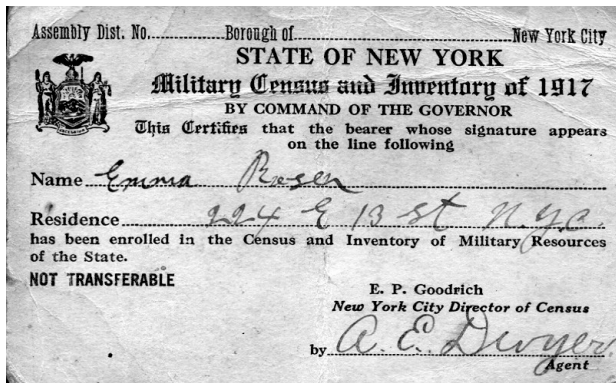 Assembly Dist. No. Borough of New York City
STATE OF NEW YORK
Military Census and Inventory of 1917
BY COMMAND OF THE GOVERNOR
This Certifies that the bearer whose signature appears
on the line following
Name Emma Rosen
Residence 224 E 13 St N.Y.C.
has been enrolled in the Census and Inventory of Military Resources
of the State.
NOT TRANSFERABLE
E. P. Goodrich
New York City Director of Census
by A. E. Dwyer
Agent